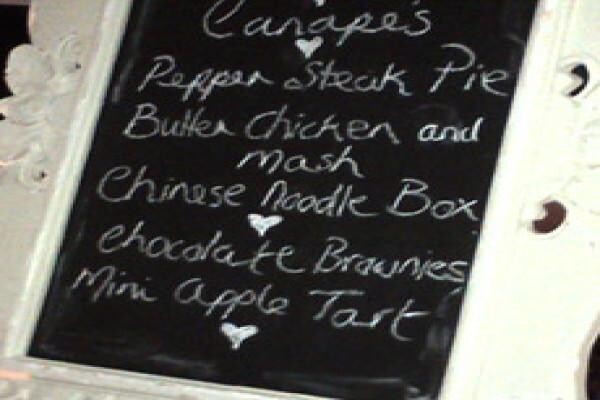 Canape's
Pepper Steak Pie
Butter Chicken and
mash
Chinese Noodle Box
Chocolate Brownies
Mini Apple Tart